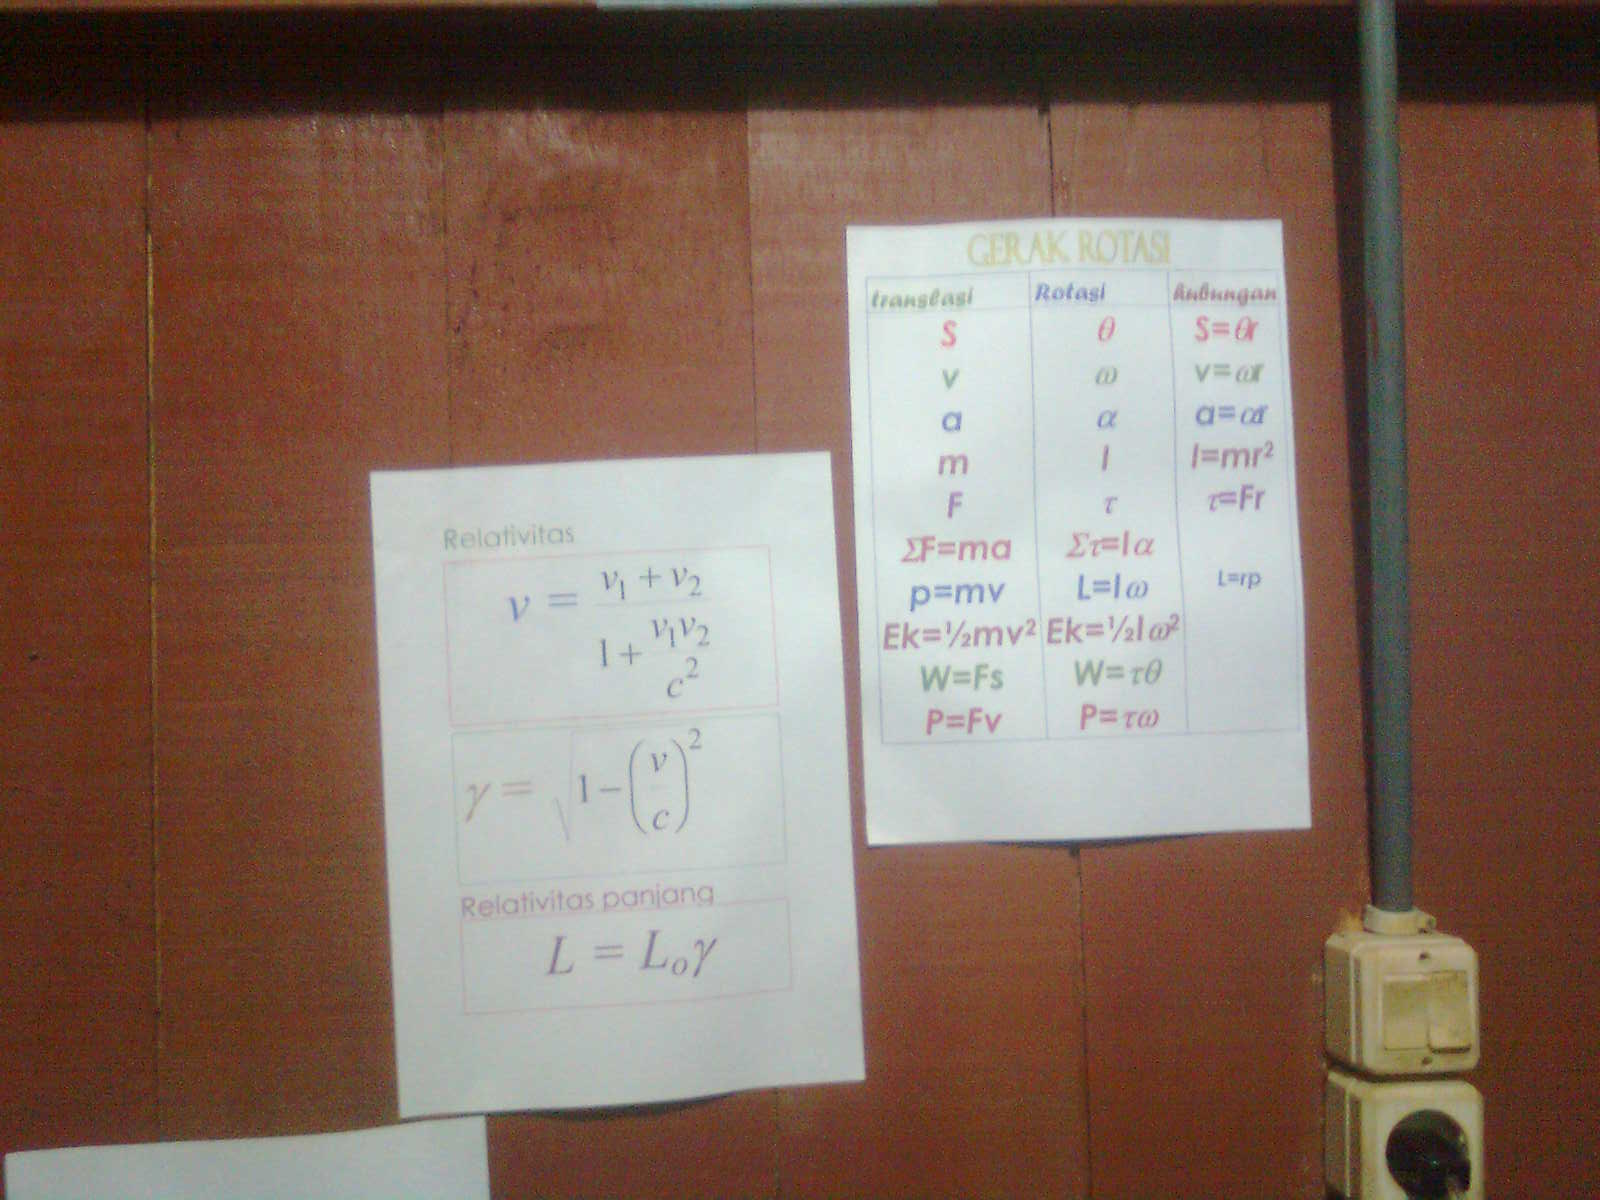 Relativitas
v = (v₁ + v₂) / (1 + v₁v₂ / c²)
γ = √(1 − (v / c)²)
Relativitas panjang
L = Lₒγ
GERAK ROTASI
translasi Rotasi hubungan
S θ S=θr
v ω v=ωr
a α a=αr
m I I=mr²
F τ τ=Fr
ΣF=ma Στ=Iα
p=mv L=Iω L=rp
Ek=½mv² Ek=½Iω²
W=Fs W=τθ
P=Fv P=τω